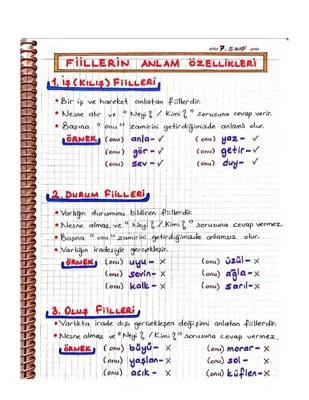 7. SINIF
FİİLLERİN ANLAM ÖZELLİKLERİ
1. İŞ (KILIŞ) FİİLLERİ
• Bir iş ve hareket anlatan fiillerdir.
• Nesne alır ve "Neyi? / Kimi?" sorusuna cevap verir.
• Başına "onu" zamirini getirdiğimizde anlamlı olur.
ÖRNEK (onu) anla- ✓ (onu) yaz- ✓
(onu) gör- ✓ (onu) getir- ✓
(onu) sev- ✓ (onu) duy- ✓
2. DURUM FİİLLERİ
• Varlığın durumunu bildiren fiillerdir.
• Nesne almaz ve "Neyi? / Kimi?" sorusuna cevap vermez.
• Başına "onu" zamirini getirdiğimizde anlamsız olur.
• Varlığın iradesiyle gerçekleşir.
ÖRNEK (onu) uyu- x (onu) üzül- x
(onu) sevin- x (onu) ağla- x
(onu) kalk- x (onu) sarıl- x
3. OLUŞ FİİLLERİ
• Varlıkta irade dışı gerçekleşen değişimi anlatan fiillerdir.
• Nesne almaz ve "Neyi? / Kimi?" sorusuna cevap vermez.
ÖRNEK (onu) büyü- x (onu) morar- x
(onu) yaşlan- x (onu) sol- x
(onu) acık- x (onu) küflen- x